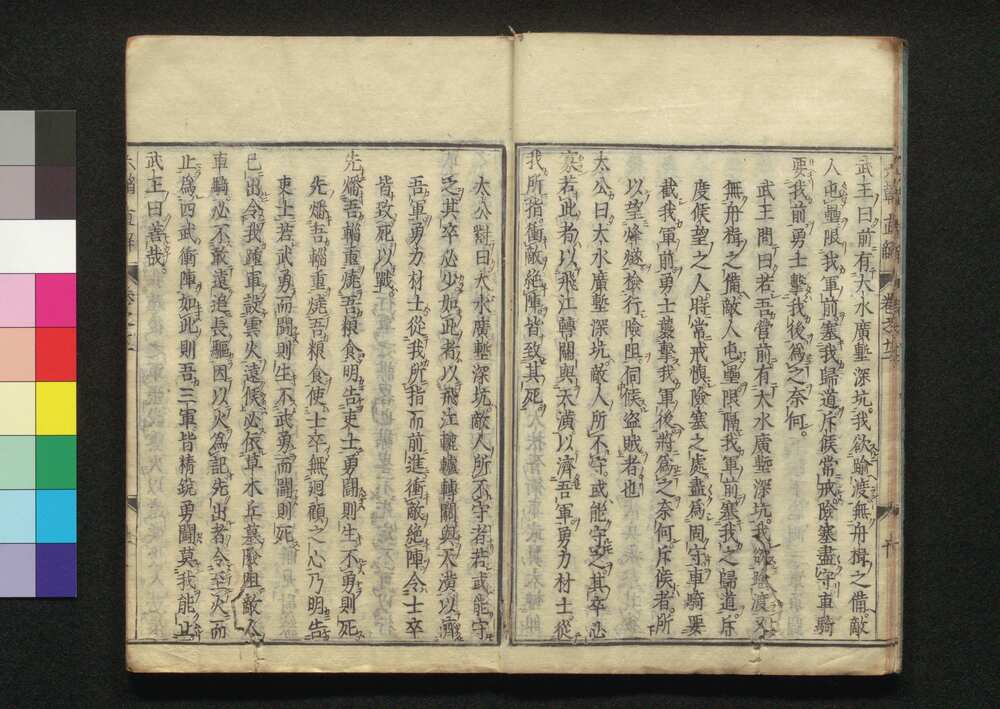 武王曰前有大水廣塹深坑我欲踰渡無舟楫之備敵
人屯壘限我軍前塞我歸道斥候常戒險塞盡守車騎
要我前勇士擊我後為之奈何
武王問曰若吾嘗前有大水廣塹深坑我欲踰渡又
無舟楫之備敵人屯壘限隔我軍前塞我之歸道斥
度候望之人時常戒慎險塞之處盡為固守車騎要
截我軍前勇士襲擊我軍後將為之奈何斥候者所
以望烽燧檢行險阻伺候盜賊者也
太公曰大水廣塹深坑敵人所不守或能守之其卒必
寡若此者以飛江轉關與天潢以濟吾軍勇力材士從
我所指衝敵絕陣皆致其死
太公對曰大水廣塹深坑敵人所不守者若或能守
之其卒必少如此者以飛江轆轤轉關與天潢以濟
吾軍勇力材士從我所指而前進衝敵絕陣令士卒
皆致死以戰
先燔吾輜重燒吾粮食明告吏士勇鬪則生不勇則死
先燔吾輜重燒吾粮食使士卒無廻顧之心乃明告
吏士若武勇而鬪則生不武勇而鬪則死
已出令我踵軍設雲火遠候必依草木丘墓險阻敵人
車騎必不敢遠追長驅因以火為記先出者令至火而
止為四武衝陣如此則吾三軍皆精銳勇鬪莫我能止
武王曰善哉